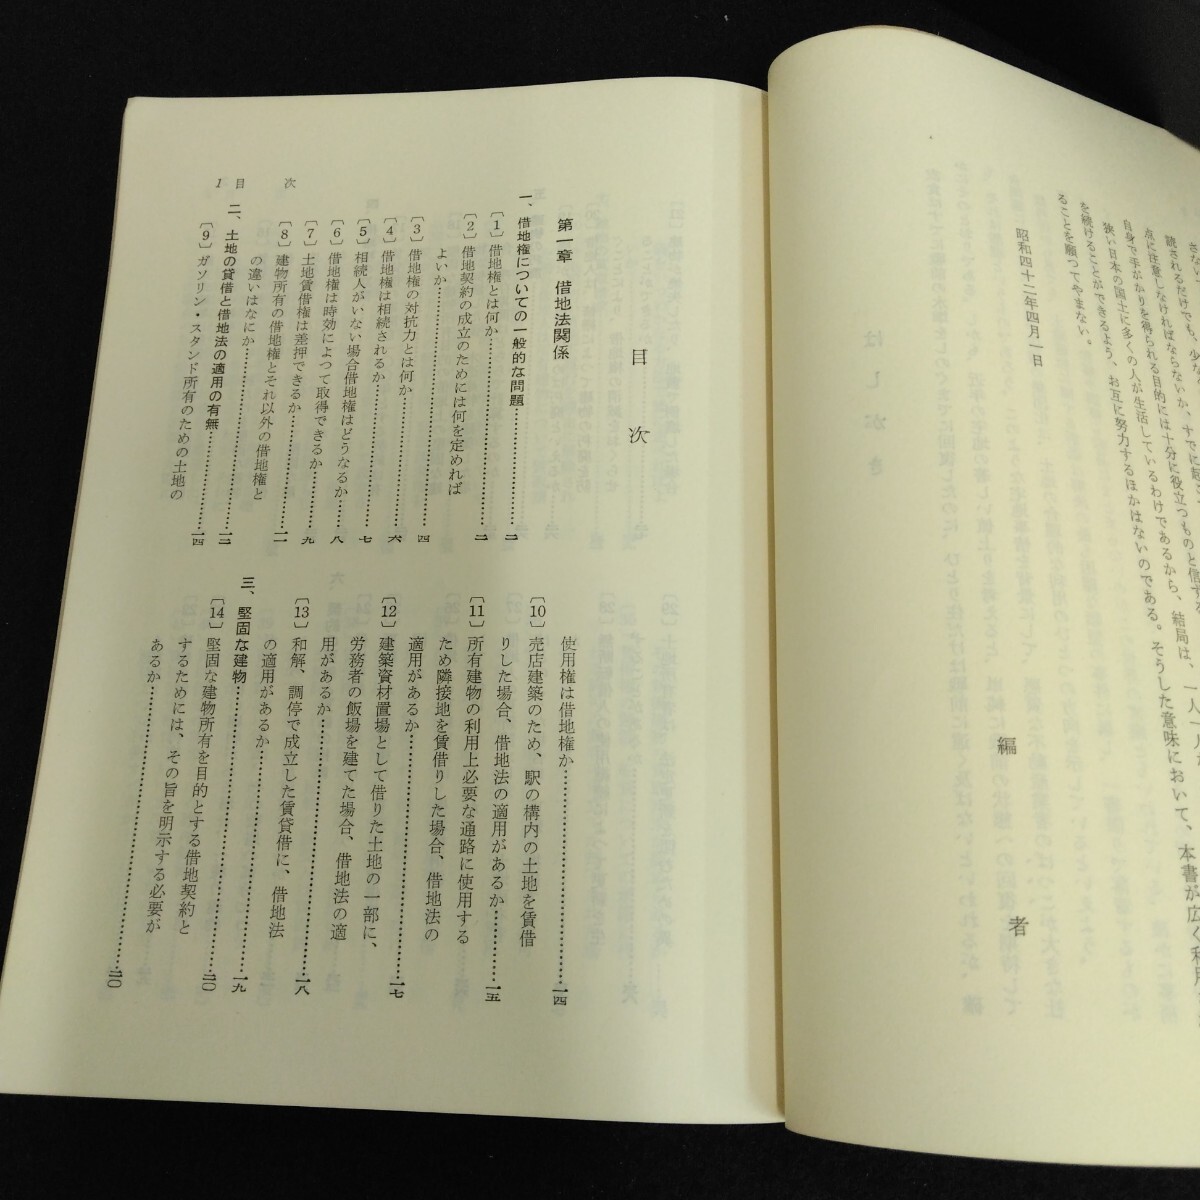 さない
続されるだけでも、少な
点に注意しなければならないか、すでに起
自身で手がかりを得られる目的には十分に役立つものと信する
狭い日本の国土に多くの人が生活しているわけであるから、結局は、一人一人
を続けることができるよう、お互に努力するほかはないのである。そうした意味において、本書が広く利用
ることを願つてやまない。
昭和四十二年四月一日
編者
目次
第一章 借地法関係
一、借地権についての一般的な問題…………二
〔1〕借地権とは何か…………二
〔2〕借地契約の成立のためには何を定めれば
よいか…………三
〔3〕借地権の対抗力とは何か…………四
〔4〕借地権は相続されるか…………六
〔5〕相続人がいない場合借地権はどうなるか…………七
〔6〕借地権は時効によつて取得できるか…………八
〔7〕土地賃借権は差押できるか…………九
〔8〕建物所有の借地権とそれ以外の借地権と
の違いはなにか…………一一
二、土地の貸借と借地法の適用の有無…………一三
〔9〕ガソリン・スタンド所有のための土地の
使用権は借地権か…………一四
〔10〕売店建築のため、駅の構内の土地を賃借
りした場合、借地法の適用があるか…………一五
〔11〕所有建物の利用上必要な通路に使用する
ため隣接地を賃借りした場合、借地法の
適用があるか…………一七
〔12〕建築資材置場として借りた土地の一部に、
労務者の飯場を建てた場合、借地法の適
用があるか…………一八
〔13〕和解、調停で成立した賃貸借に、借地法
の適用があるか…………一九
三、堅固な建物…………二〇
〔14〕堅固な建物所有を目的とする借地契約と
するためには、その旨を明示する必要が
あるか…………二〇
1 目次